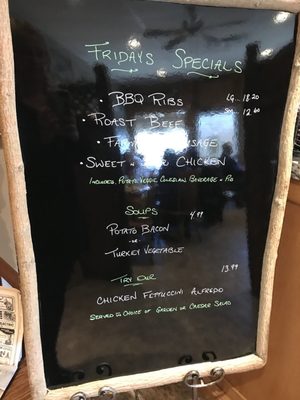 Fridays Specials
• BBQ Ribs LG... 18.20
• Roast Beef SM... 12.60
• Sausage
• Sweet n Chicken
Includes, Potato, Veggie, Coleslaw, Beverage + Pie
Soups 4.99
Potato Bacon
-or-
Turkey Vegetable
Try Our 13.99
Chicken Fettuccini Alfredo
Served w/ Choice of Garden or Caesar Salad